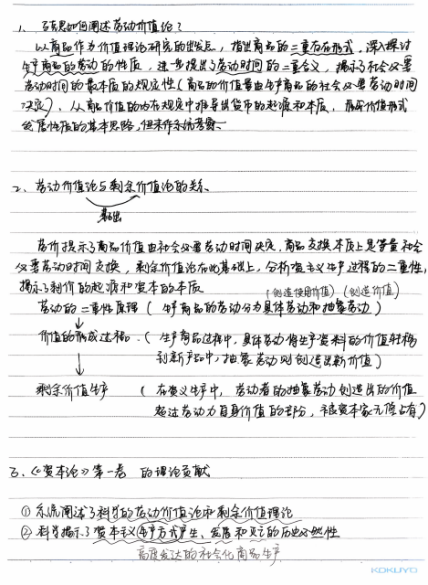 1、马克思如何阐述劳动价值论？
以商品作为价值理论研究的出发点，指出商品的二重存在形式，深入探讨
生产商品的劳动的性质，进一步提出了劳动时间的二重含义，揭示了社会必要
劳动时间的最本质的规定性（商品的价值量由生产商品的社会必要劳动时间
决定）、从商品价值的内在规定中推导出货币的起源和本质，价值形式
发展性质的基本思路，但未作系统考察。
2、劳动价值论与剩余价值论的关系
基础
劳价揭示了商品价值由社会必要劳动时间决定，商品交换本质上是等量社会
必要劳动时间交换，剩余价值论在此基础上，分析资主义生产过程的二重性，
揭示了剩价的起源和资本的本质
（创造使用价值）（创造价值）
劳动的二重性原理（生产商品的劳动分为具体劳动和抽象劳动）
↓
价值的形成过程.（生产商品过程中，具体劳动将生产资料的价值转移
到新产品中，抽象劳动则创造出新价值）
↓
剩余价值生产（在资义生产中，劳动者的抽象劳动创造出的价值
超过劳动力自身价值的部分，被资本家无偿占有）
3、《资本论》第一卷 的理论贡献
① 系统阐述了科学的劳动价值论和剩余价值理论
② 科学揭示了资本主义生产方式产生、发展和灭亡的历史必然性
高度发达的社会化商品生产
KOKUYO